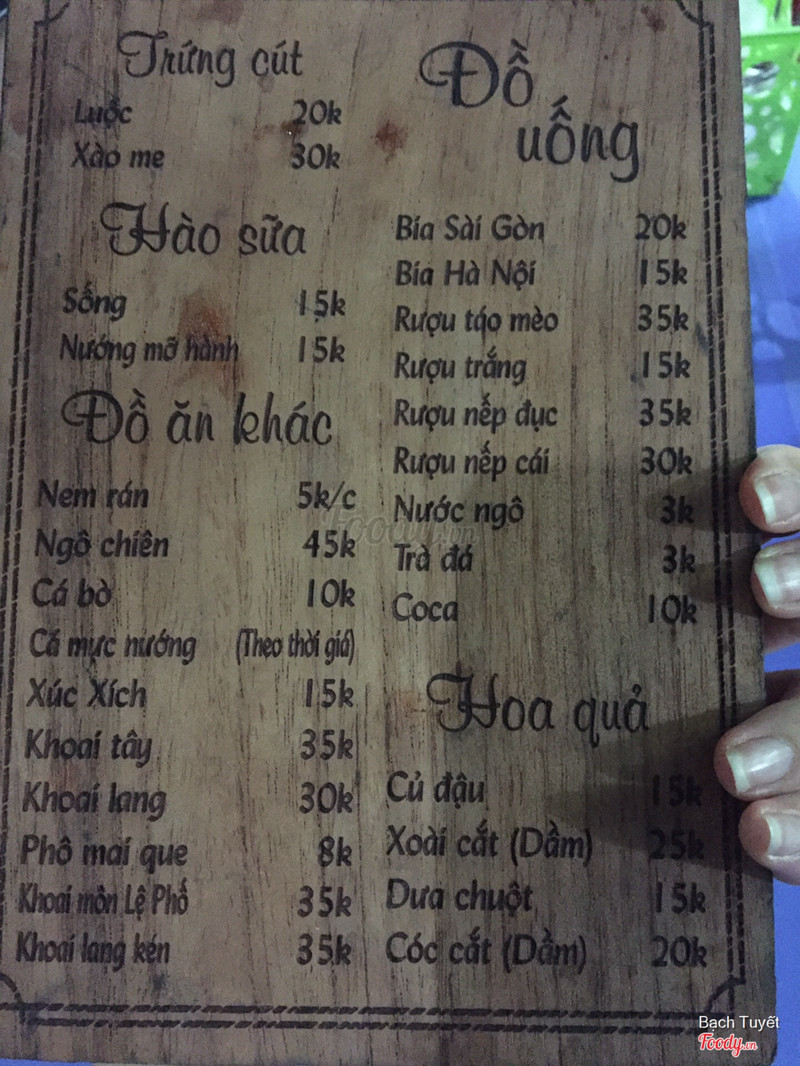 Trứng cút
Luộc 20k
Xào me 30k
Hào sữa
Sống 15k
Nướng mỡ hành 15k
Đồ ăn khác
Nem rán 5k/c
Ngô chiên 45k
Cá bò 10k
Cá mực nướng (Theo thời giá)
Xúc Xích 15k
Khoai tây 35k
Khoai lang 30k
Phô mai que 8k
Khoai môn Lệ Phố 35k
Khoai lang kén 35k
Đồ
uống
Bia Sài Gòn 20k
Bia Hà Nội 15k
Rượu táo mèo 35k
Rượu trắng 15k
Rượu nếp đục 35k
Rượu nếp cái 30k
Nước ngô 3k
Trà đá 3k
Coca 10k
Hoa quả
Củ đậu 15k
Xoài cắt (Dầm) 25k
Dưa chuột 15k
Cóc cắt (Dầm) 20k
foody.vn
Bạch Tuyết
Foody.vn